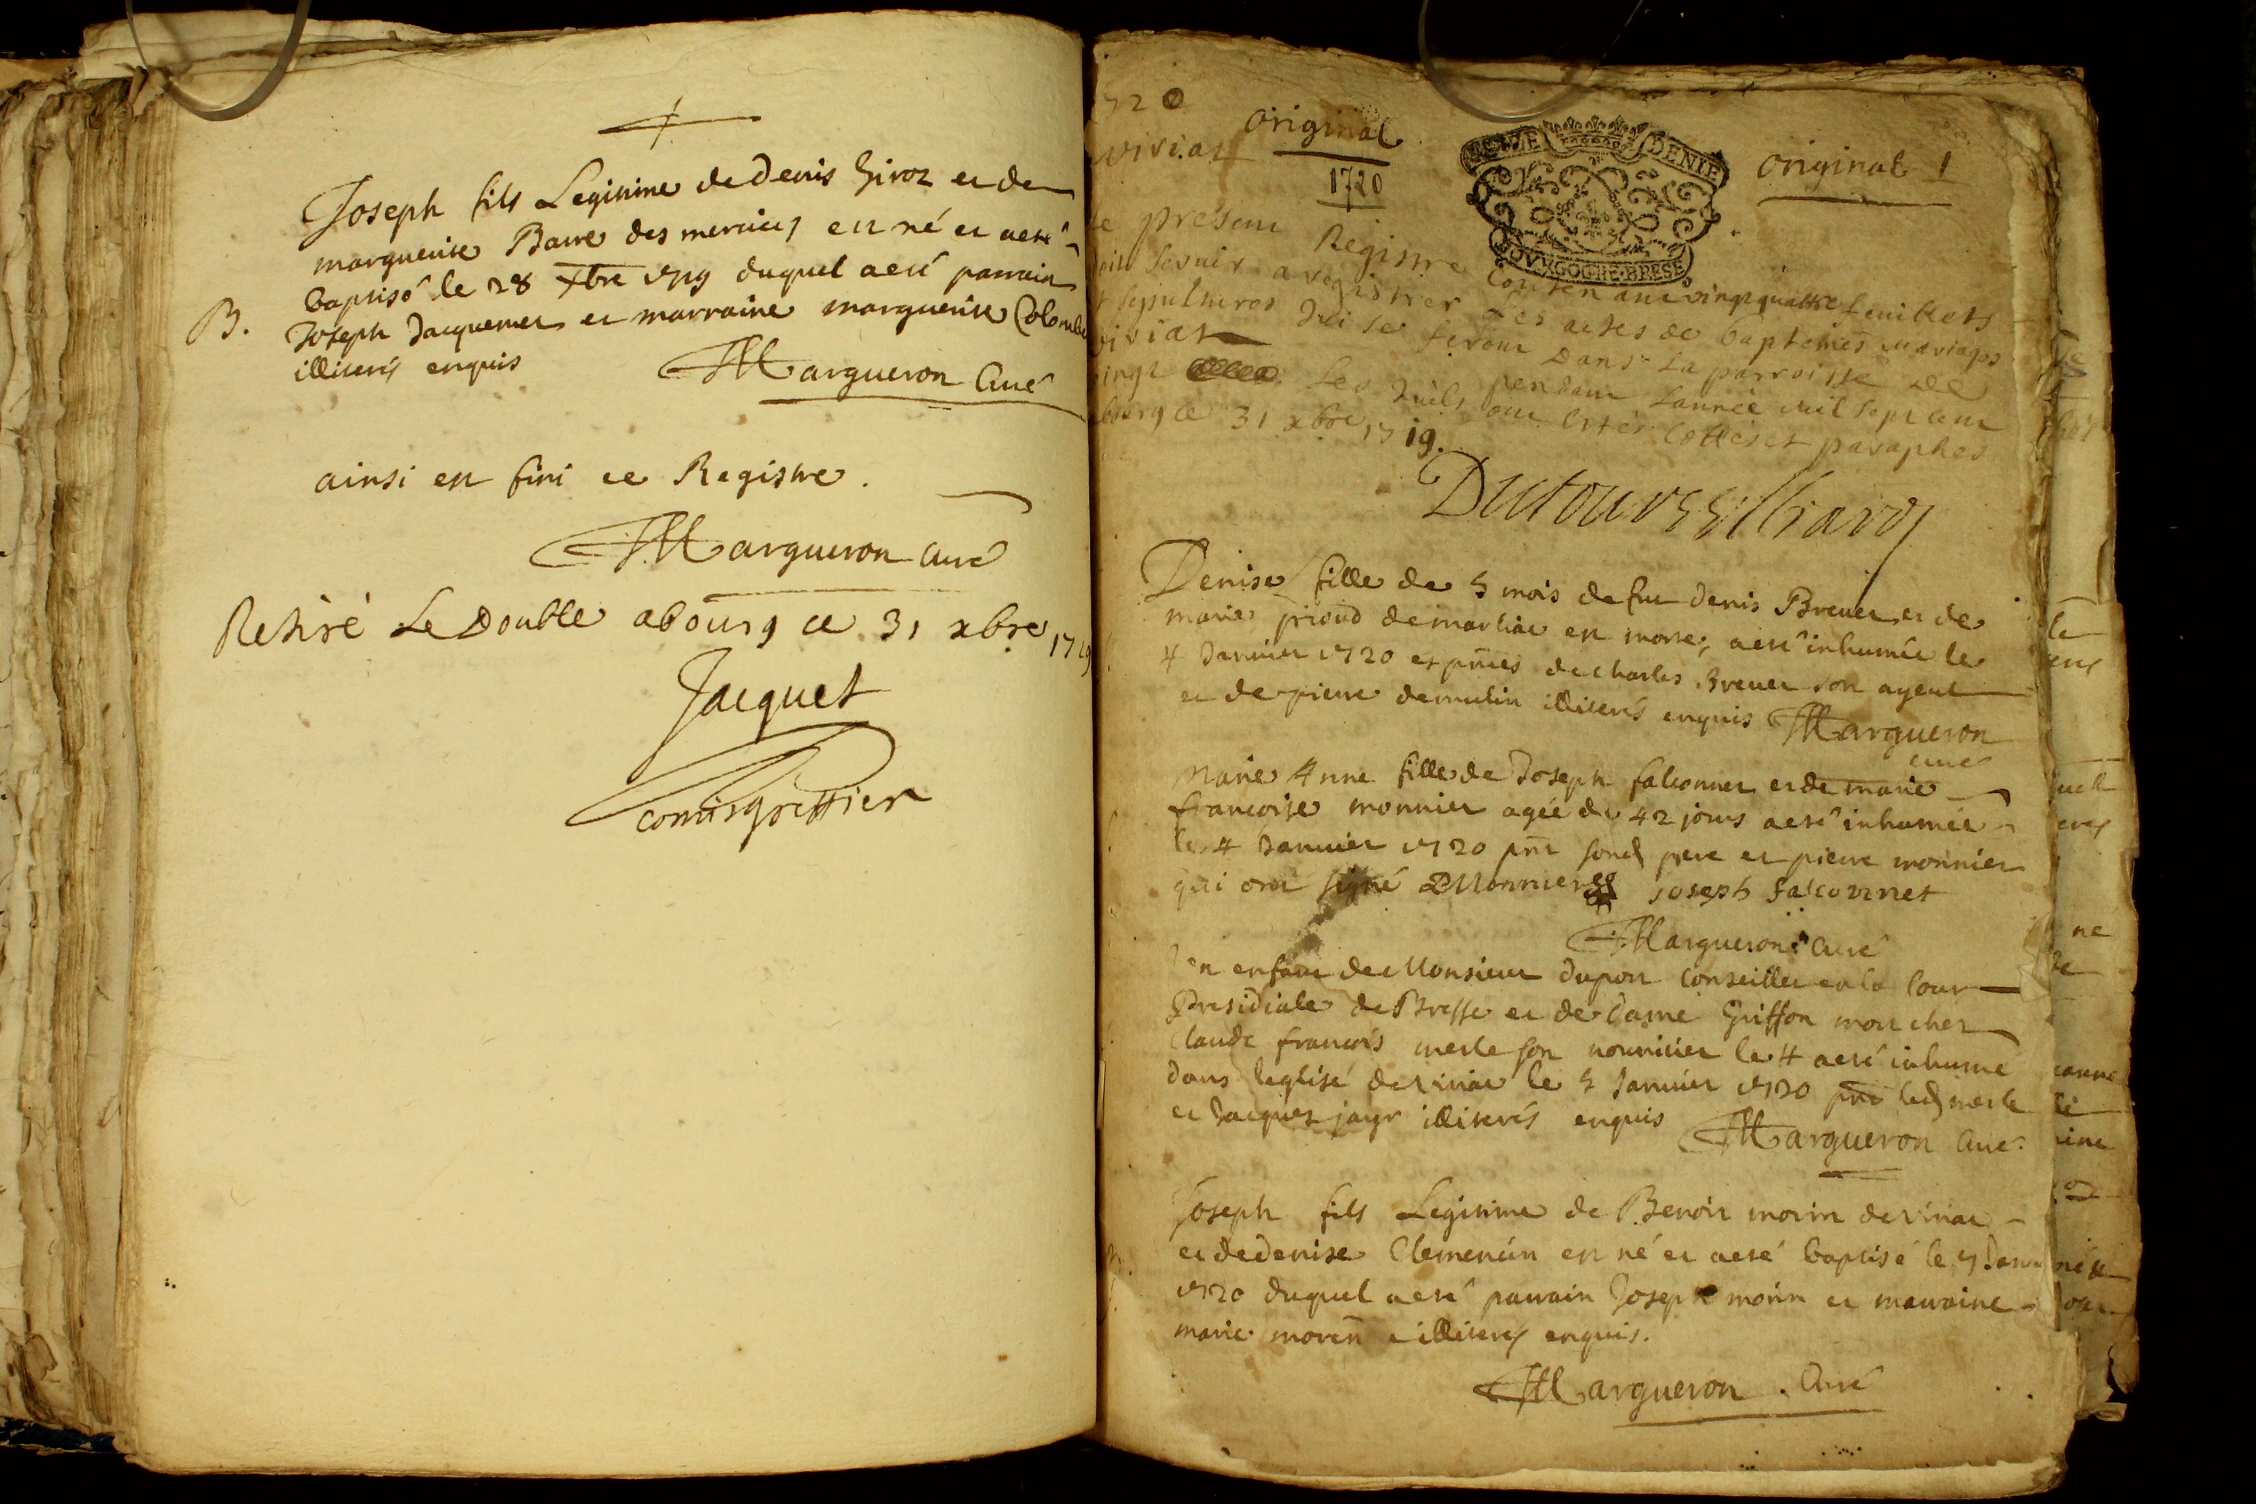 Joseph fils Legitime de Denis Giroz et de
marguerite Barre des merciers est né et a eté
B. baptisé le 28 xbre 1719 duquel a eté parrain
Joseph Jacquemet et marraine marguerite Colombe
illiterés enquis Margueron Curé
ainsi est fini ce Registre.
Margueron Curé
Retiré Le Double a bourg ce 31 xbre 1719
Jacquet
comis greffier
original
1720
viriat
MOYENNE DENIE
original 1
BOVRGOGNE·BRESE
le present Registre Contenant vingt quattre feuillets
servir a registrer Les actes de baptemes mariages
et sepultures qui se feront Dans La parroisse de
viriat pendant Lannée mil sept cent
vingt Les quels ont estés cottés et paraphes
bourg ce 31 xbre 1719.
Denise fille de 5 mois de fut denis Brevet et de
marie prioud de marliat est morte, a eté inhumée le
4 Janvier 1720 et pntes de charles Brevet son ayeul
et de pierre demulin illiterés enquis Margueron
curé
Marie Anne fille de Joseph falconnet et de marie
francoise monnier agée de 42 jours a eté inhumée
le 4 Janvier 1720 pnt sond pere et pierre monnier
qui ont signé PMonnier Joseph Falconnet
Margueron Curé
Un enfant de Monsieur dupont Conseiller en la Cour
Presidiale de Bresse et de Dame Griffon mort chez
Claude francois merle son nourricier le 4 a eté inhumé
dans leglise de viriat le 5 Janvier 1720 pnt led merle
et Jacques jayr illiterés enquis Margueron Curé.
Joseph fils Legitime de Benoit morin de viriat
et de denise Clemencin est né et a eté baptisé le 7 Janv
1720 duquel a eté parrain Joseph morin et marraine
marie morin illiterés enquis.
Margueron. Curé